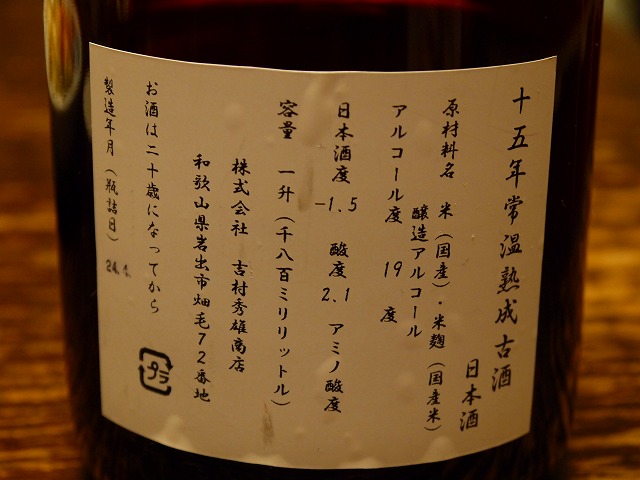 十五年常温熟成古酒
日本酒
原材料名 米(国産)・米麹(国産米)
醸造アルコール
アルコール度 19 度
日本酒度 -1.5 酸度 2.1 アミノ酸度
容量 一升(千八百ミリリットル)
株式会社 吉村秀雄商店
和歌山県岩出市畑毛72番地
お酒は二十歳になってから
製造年月(瓶詰日) 24.4.
プラ